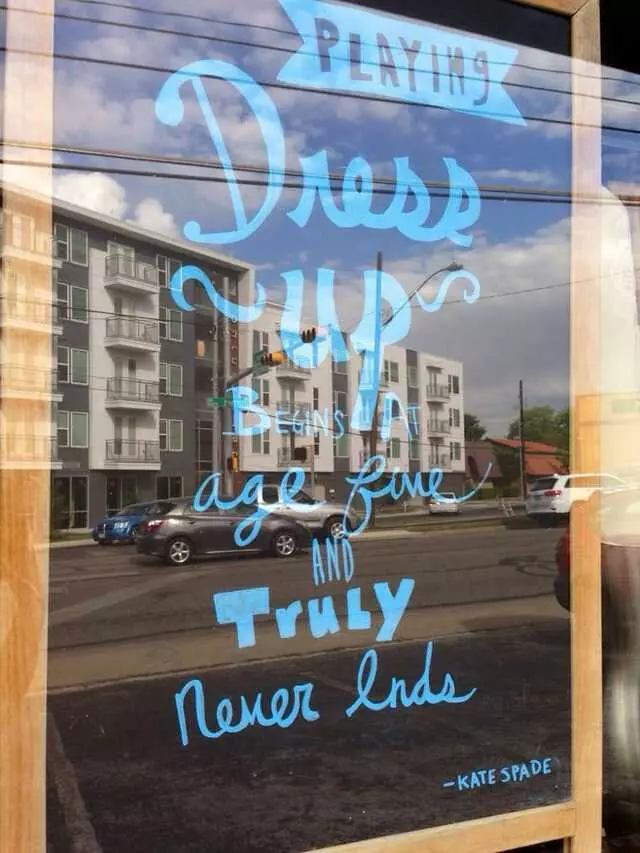 PLAYING
Dress
UP
BEGINS AT
age five
AND
TRULY
Never Ends
-KATE SPADE